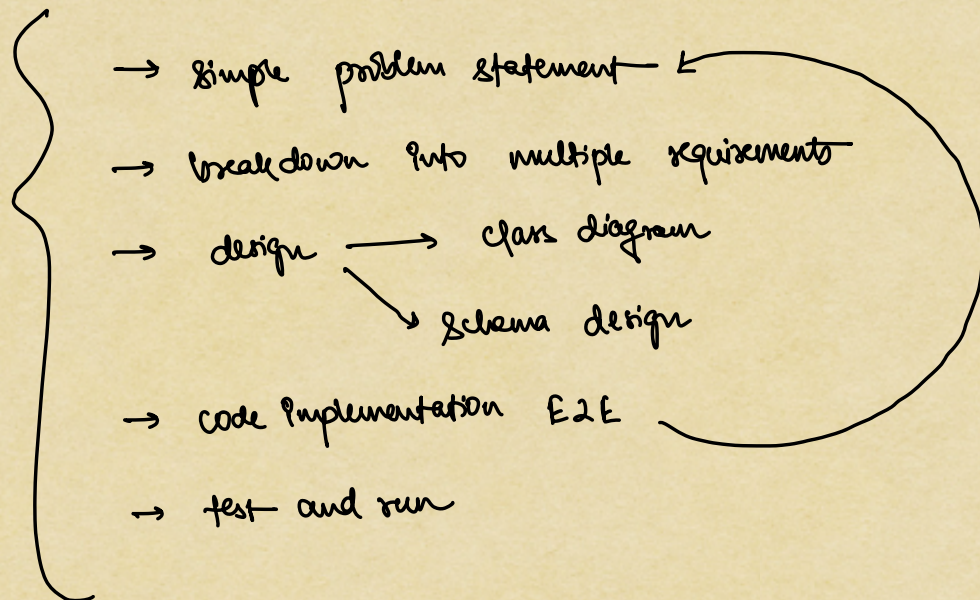 → simple problem statement
→ breakdown into multiple requirements
→ design → class diagram
→ schema design
→ code implementation E2E
→ test and run